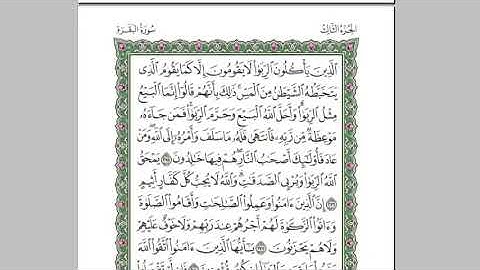 الجزء الثالث
سورة البقرة
الَّذِينَ يَأْكُلُونَ الرِّبَوٰا۟ لَا يَقُومُونَ إِلَّا كَمَا يَقُومُ الَّذِى
يَتَخَبَّطُهُ الشَّيْطَٰنُ مِنَ الْمَسِّ ذَٰلِكَ بِأَنَّهُمْ قَالُوٓا۟ إِنَّمَا الْبَيْعُ
مِثْلُ الرِّبَوٰا۟ وَأَحَلَّ اللَّهُ الْبَيْعَ وَحَرَّمَ الرِّبَوٰا۟ فَمَن جَآءَهُۥ
مَوْعِظَةٌ مِّن رَّبِّهِۦ فَانتَهَىٰ فَلَهُۥ مَا سَلَفَ وَأَمْرُهُۥٓ إِلَى اللَّهِ وَمَنْ
عَادَ فَأُو۟لَٰٓئِكَ أَصْحَٰبُ النَّارِ هُمْ فِيهَا خَٰلِدُونَ ٢٧٥ يَمْحَقُ
اللَّهُ الرِّبَوٰا۟ وَيُرْبِى الصَّدَقَٰتِ وَاللَّهُ لَا يُحِبُّ كُلَّ كَفَّارٍ أَثِيمٍ
٢٧٦ إِنَّ الَّذِينَ ءَامَنُوا۟ وَعَمِلُوا۟ الصَّٰلِحَٰتِ وَأَقَامُوا۟ الصَّلَوٰةَ
وَءَاتَوُا۟ الزَّكَوٰةَ لَهُمْ أَجْرُهُمْ عِندَ رَبِّهِمْ وَلَا خَوْفٌ عَلَيْهِمْ
وَلَا هُمْ يَحْزَنُونَ ٢٧٧ يَٰٓأَيُّهَا الَّذِينَ ءَامَنُوا۟ اتَّقُوا۟ اللَّهَ